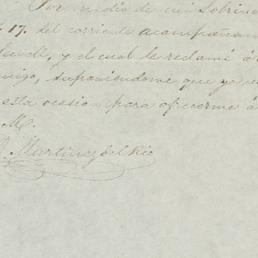 Por medio de mi Sobrino
17. del corriente acompañan
y el cual le reclamé á
suponiendome que ya
esta ocasion para ofrecerme á
M.
Martinez del Rio